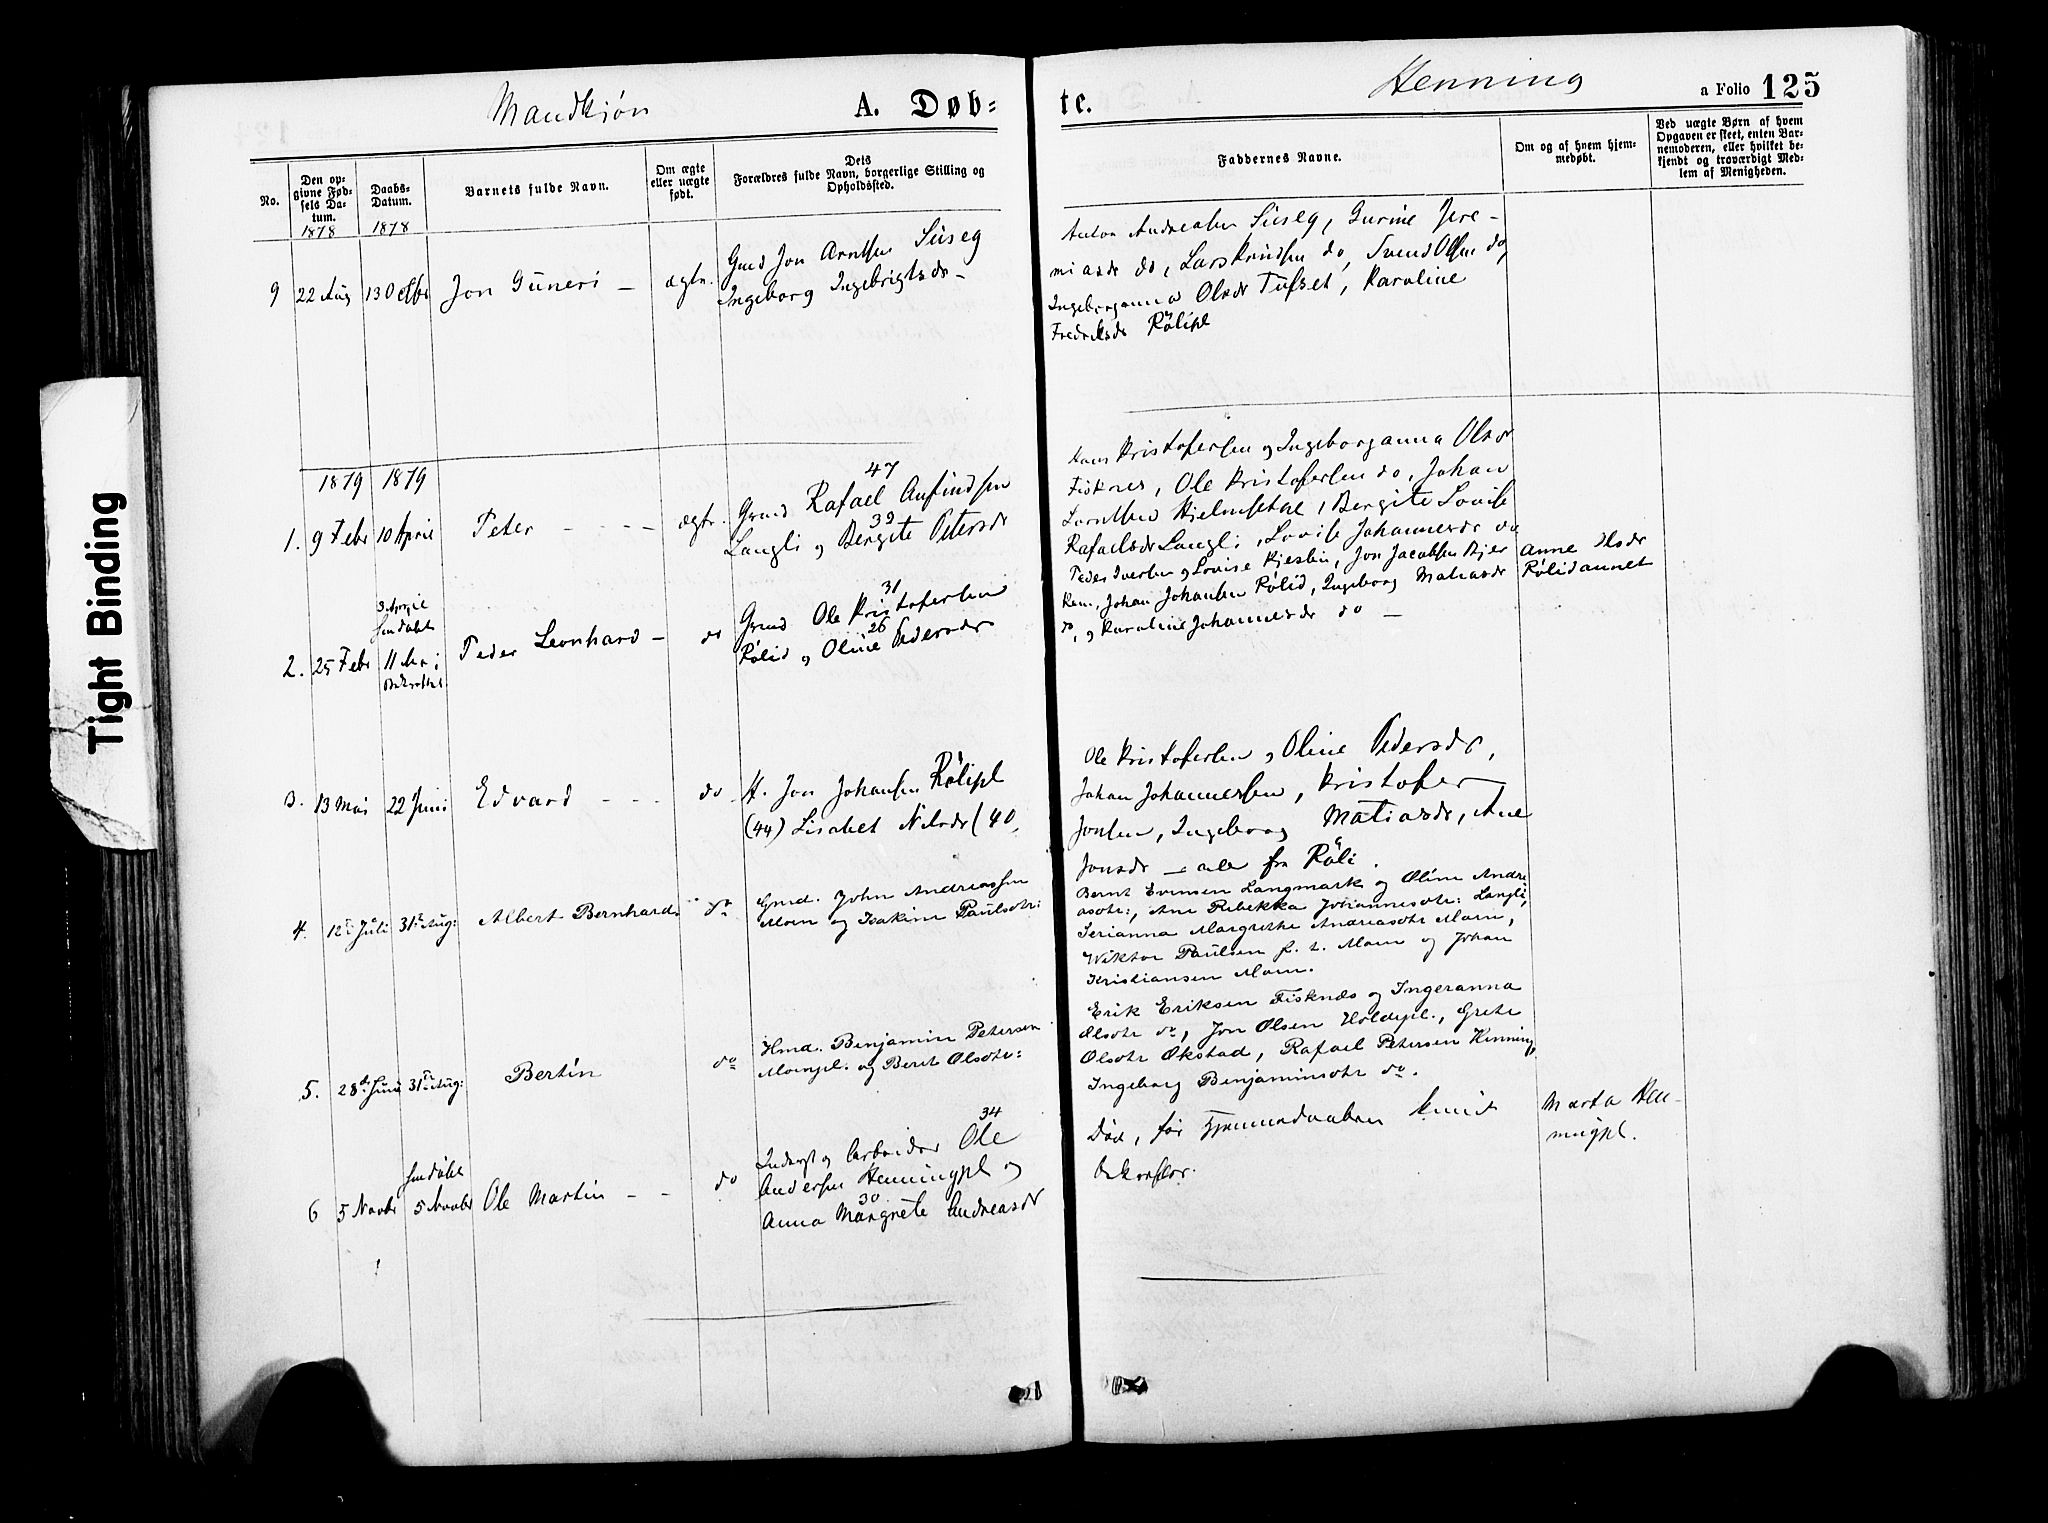 Mandkjön
A. Døb=
te.
Henning
a Folio 125
No.
Den op-
givne Fød-
sels Da-
tum.
1878
Daabs-
Datum.
1878
Barnets fulde Navn.
Om ægte
eller uægte
født.
Dets
Forældres fulde Navn, borgerlige Stilling og
Opholdssted.
Faddernes Navne.
Om og af hvem hjem-
medøbt.
Ved uægte Børn af hvem
Opgaven er skeet, enten Bar-
nemoderen, eller hvilket be-
kjendt og troværdigt Med-
lem af Menigheden.
9
22 Aug
13 Octbr
Jon Guneri –
ægte.
Gmd Jon Arntsen
Ingeborg Ingebrigtsdr –
Anton Andreasen
Lars Knudsen do, Svend Olsen do,
Ingeborganna Olsdr Tufset, Karoline
Fredriksdr Rölipl
1879
1879
1.
9 Febr
10 April
Peter - - - -
ægte.
47
Gmd Rafael Anfindsen
39
Langli og Bergite Petersdr
Hans Kristofersen og Ingeborganna Olsdr
Fisknes, Ole Kristofersen do, Johan
Bergite Lovise
Rafaelsdr Langli, Lovise Johannesdr do
2.
25 Febr
3 April
hmdøbt
11 Mai
Peder Leonhard –
do
31
Gmd Ole Kristofersen
26
Rölid og Oline Pedersdr
Peder Iversen og Lovise Jon Jacobsen
Johan Johansen Rölid, Ingeborg Matiasdr
do, og Karoline Johannesdr do –
Anne Olsdr
3.
13 Mai
22 Juni
Edvard - - -
do
H. Jon Johansen Rölipl
(44) Lisabet Nilsdr (40
Ole Kristofersen og Oline Pedersdr,
Johan Johannessen, Kristofer
Jonsen, Ingeborg Matiasdr, Ane
Jonsdr – alle fra Röli.
4.
12te Juli
31te Aug:
Albert Bernhard.
do
Gmd. John Andreassen
Moen og Isakine Paulsdtr:
Bernt Evensen Langmark og Oline Andre
asdtr:, Ane Rebekka Johannesdtr: Langli,
Serianna Margrethe Andreasdtr Moen,
Wiktor Paulsen f. t. Moen og Johan
Kristiansen Moen.
5.
28de Juni
31te Aug:
Bertin
do
Hmd. Benjamin Petersen
Moenpl. og Berit Olsdtr:
Erik Eriksen Fisknes og Ingeranna
Olsdtr do, Jon Olsen Holdepl., Grete
Olsdtr Økstad, Rafael Petersen Henning,
Ingeborg Benjaminsdtr do.
6
5 Novbr
hmdøbt
5 Novbr
Ole Martin - -
do
34
Inderst og Arbeider Ole
Andersen Henningpl og
30
Anna Margrete Andreasdr
Död, för Hjemmedaaben kunde
bekræftes.
Marta Hen-
ningpl.
Tight Binding